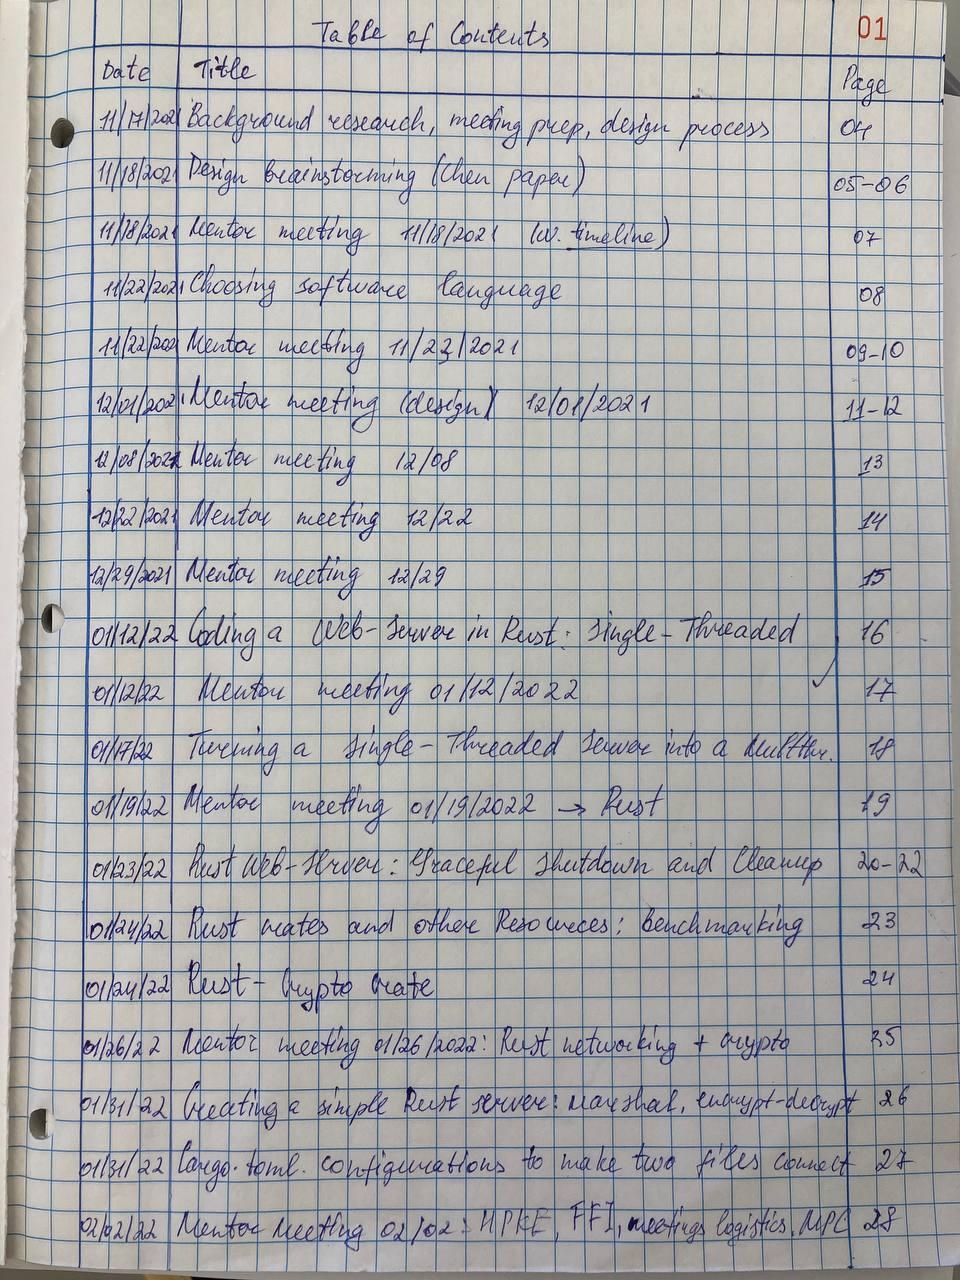 Table of Contents 01
Date Title Page
11/17/2021 Background research, meeting prep, design process 04
11/18/2021 Design brainstorming (Chen paper) 05-06
11/18/2021 Mentor meeting 11/18/2021 (w. timeline) 07
11/22/2021 Choosing software language 08
11/22/2021 Mentor meeting 11/23/2021 09-10
12/01/2021 Mentor meeting (design) 12/01/2021 11-12
12/08/2021 Mentor meeting 12/08 13
12/22/2021 Mentor meeting 12/22 14
12/29/2021 Mentor meeting 12/29 15
01/12/22 Coding a Web-Server in Rust: Single-Threaded 16
01/12/22 Mentor meeting 01/12/2022 17
01/17/22 Turning a Single-Threaded Server into a Multthr. 18
01/19/22 Mentor meeting 01/19/2022 → Rust 19
01/23/22 Rust Web-Server: Graceful Shutdown and Cleanup 20-22
01/24/22 Rust crates and other Resources: Benchmarking 23
01/24/22 Rust-Crypto Crate 24
01/26/22 Mentor meeting 01/26/2022: Rust networking + crypto 25
01/31/22 Creating a simple Rust server: marshal, encrypt-decrypt 26
01/31/22 Cargo.toml. configurations to make two files connect 27
02/02/22 Mentor Meeting 02/02: HPKE, FFI, meetings logistics, MPC 28